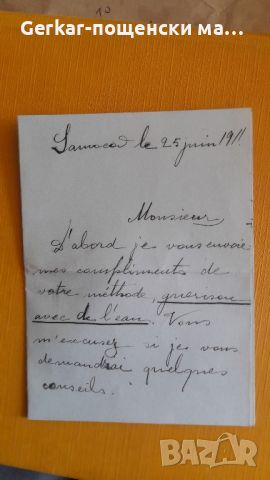 Gerkar-пощенски ма...
Samocod le 25 juin 1911.
Monsieur
D'abord je vous envoie
mes compliments de
votre méthode, guerison
avec de l'eau. Vous
m'excusez si je vous
demandrai quelques
conseils.
BAZAR
.bg